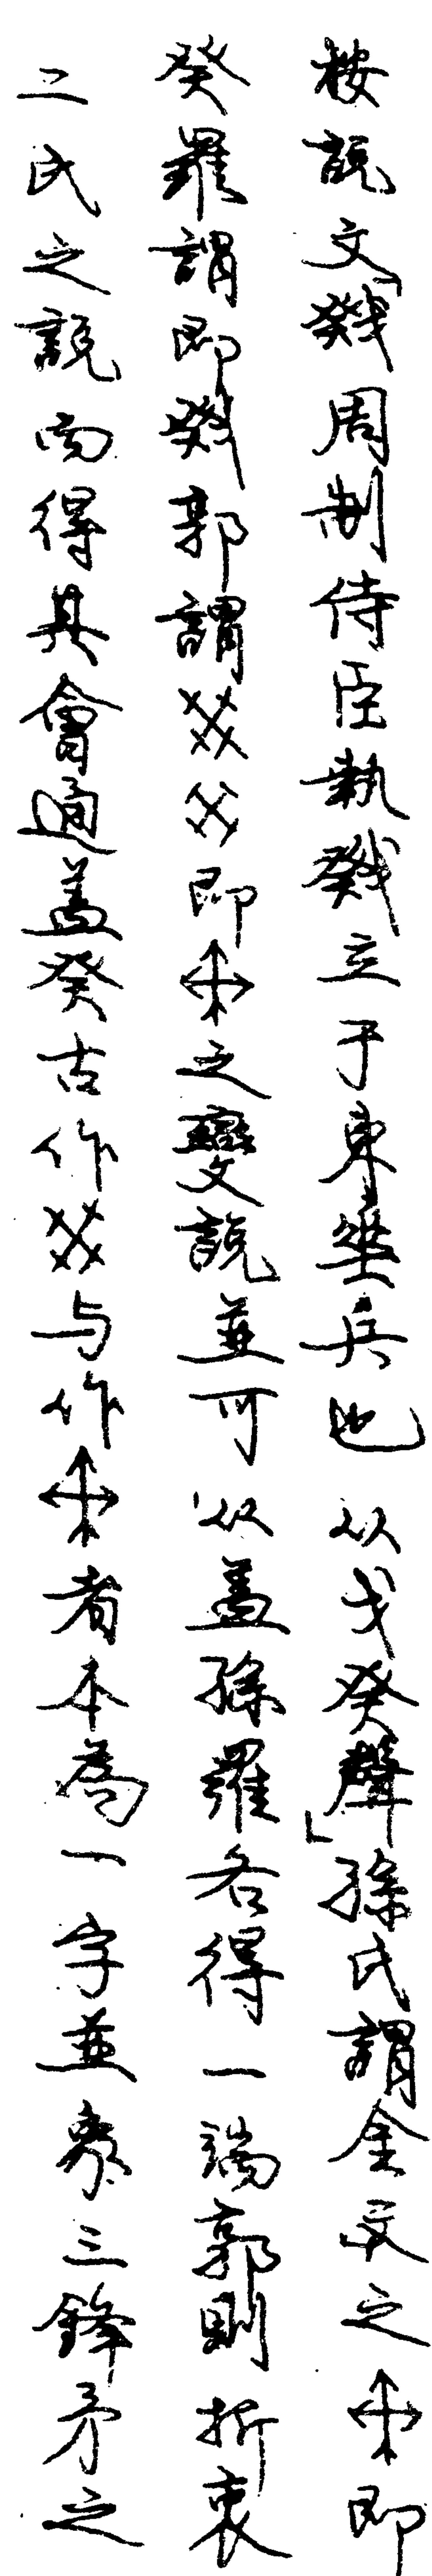 按說文「戣周制侍臣執戣立于東垂兵也 从戈癸聲」孫氏謂金文之即
癸羅謂即戣郭謂癸癸即之變說並可从蓋孫羅各得一端郭則折衷
二氏之說而得其會通蓋癸古作癸与作者本為一字並象三鋒矛之